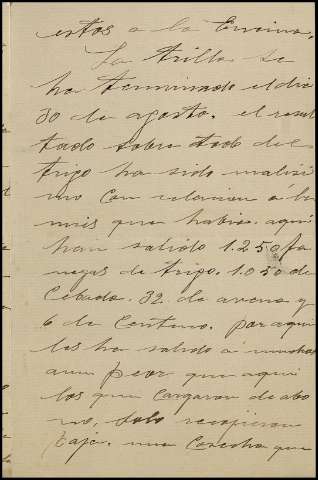 estos a la Encina.
La trilla se
ha terminado el dia
30 de agosto. el resul
tado sobre todo del
trigo ha sido malisi
mo con relacion á la
mis que habia. aqui
han salido 1.250 fa
negas de trigo. 1.050 de
Cebada. 32 de avena y
6 de Centeno. por aqui
les ha salido á muchos
aun peor que aqui
los que cargaron de abo
no, solo recojieron
paja. una Cosecha que